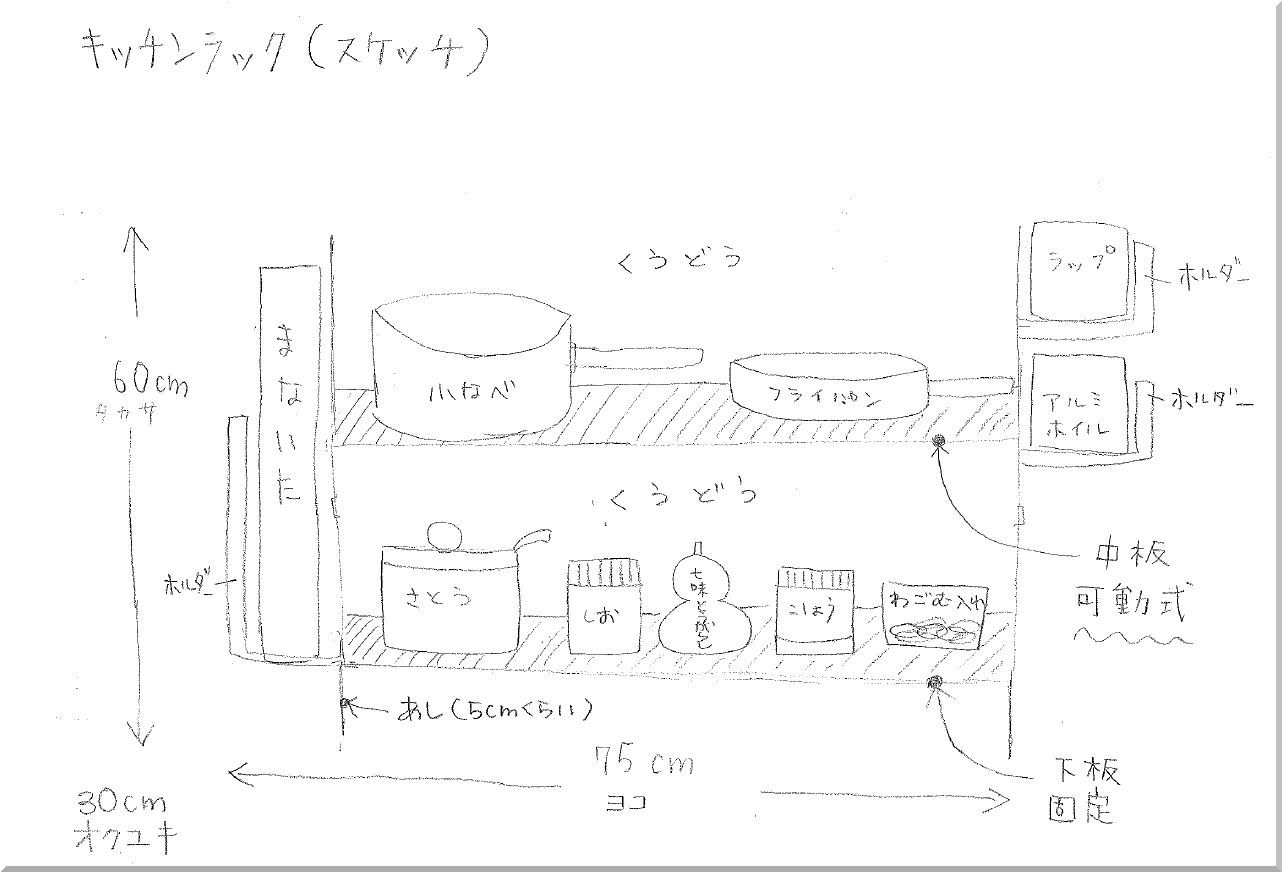 キッチンラック(スケッチ)
くうどう
ラップ
ホルダー
60cm
タカサ
まないた
小なべ
フライパン
アルミ
ホイル
ホルダー
くうどう
中板
可動式
ホルダー
さとう
しお
七味とうがらし
こしょう
わごむ入れ
あし(5cmくらい)
75cm
ヨコ
下板
固定
30cm
オクユキ